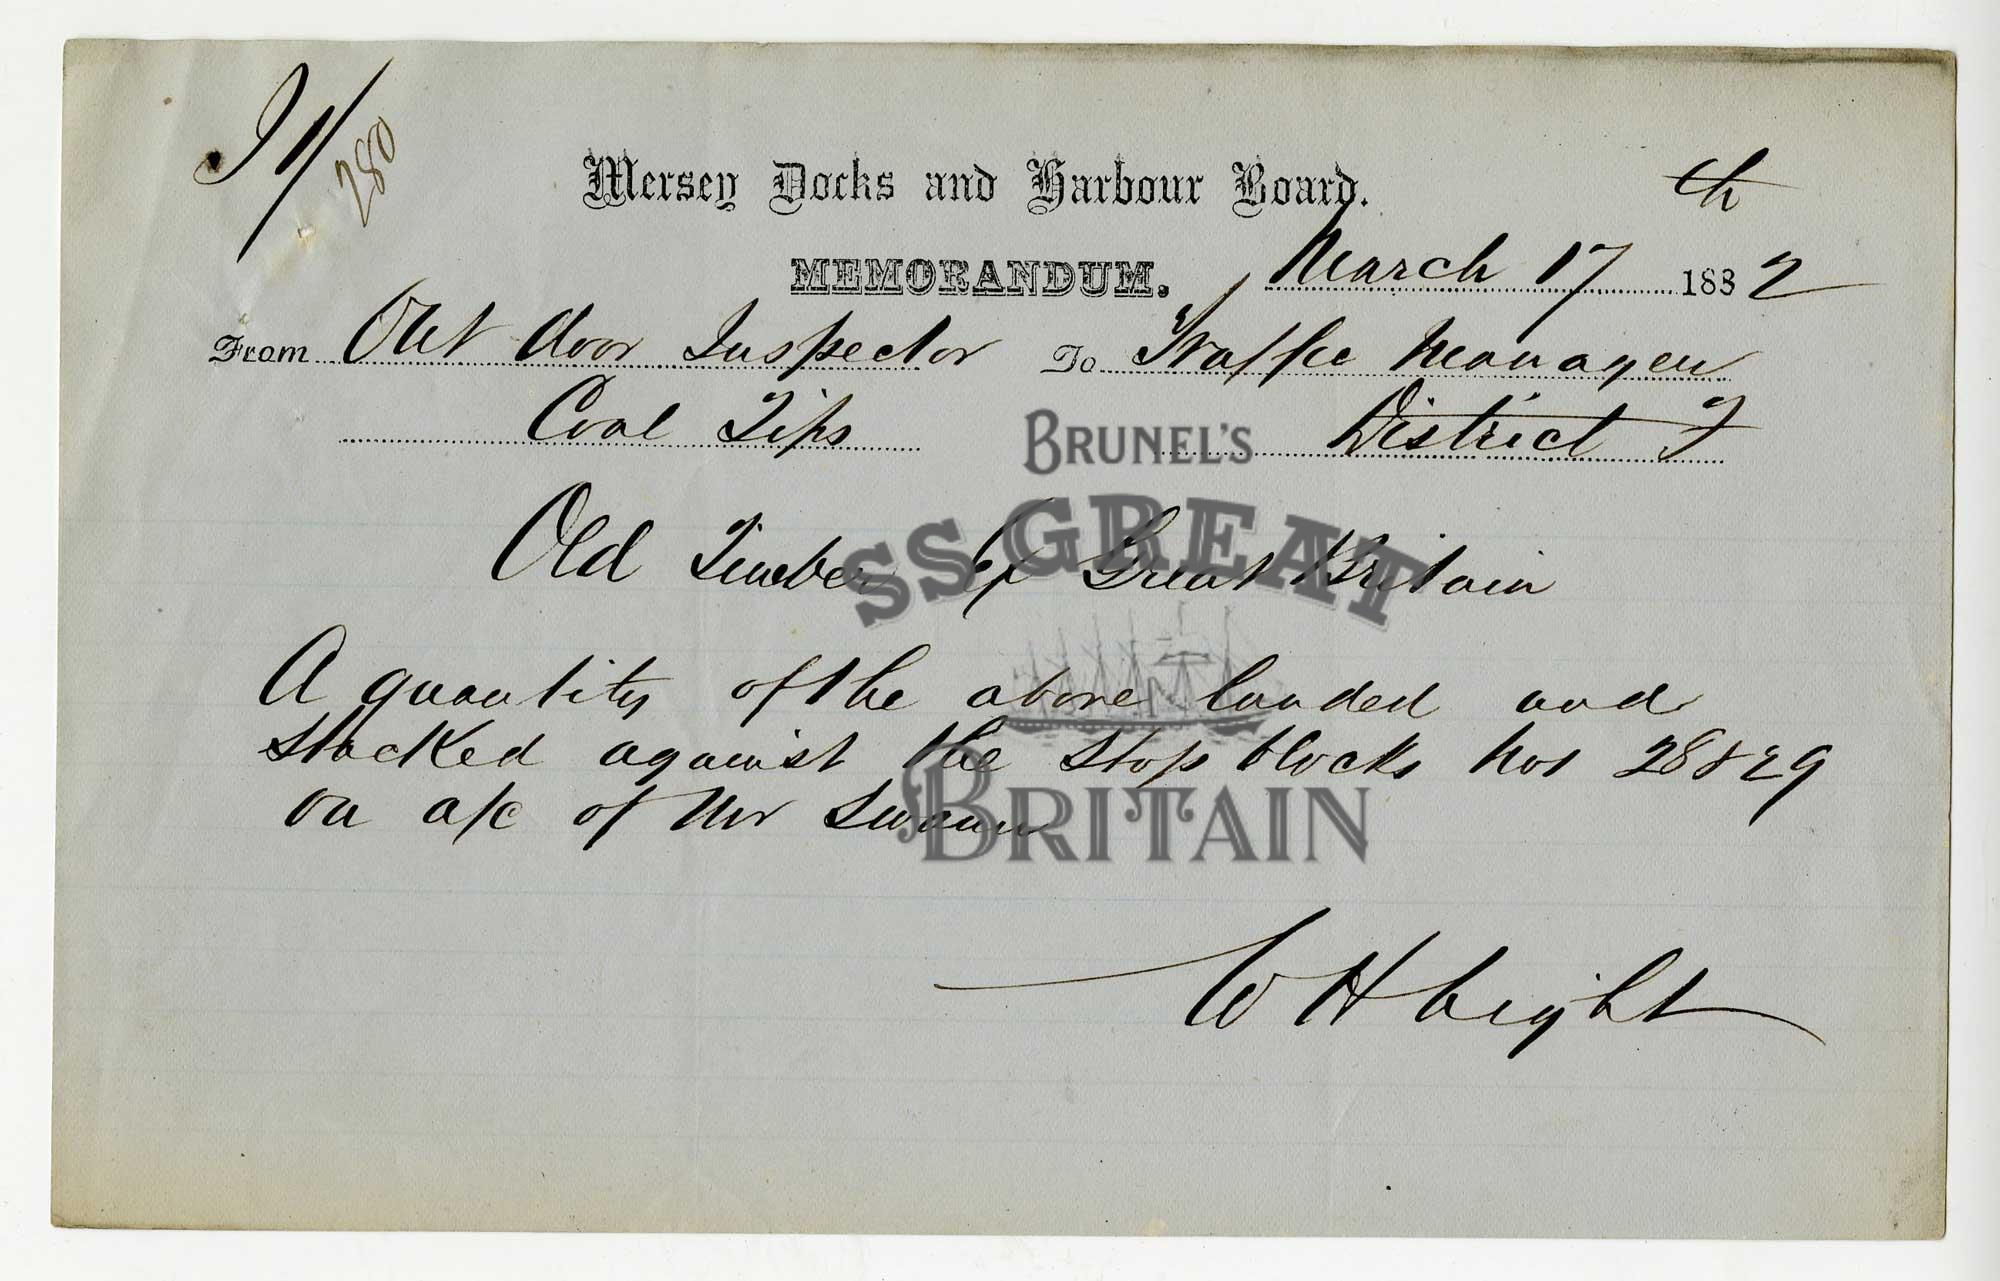 280
Mersey Docks and Harbour Board.
MEMORANDUM. March 17th 1882
From Out door Inspector To Traffic Manager
Coal Tips District
Old Timber Ex Great Britain
A quantity of the above landed and
stacked against the stop blocks Nos 28 & 29
on a/c of Mr Swann
W H Light
BRUNEL'S
SS GREAT
BRITAIN